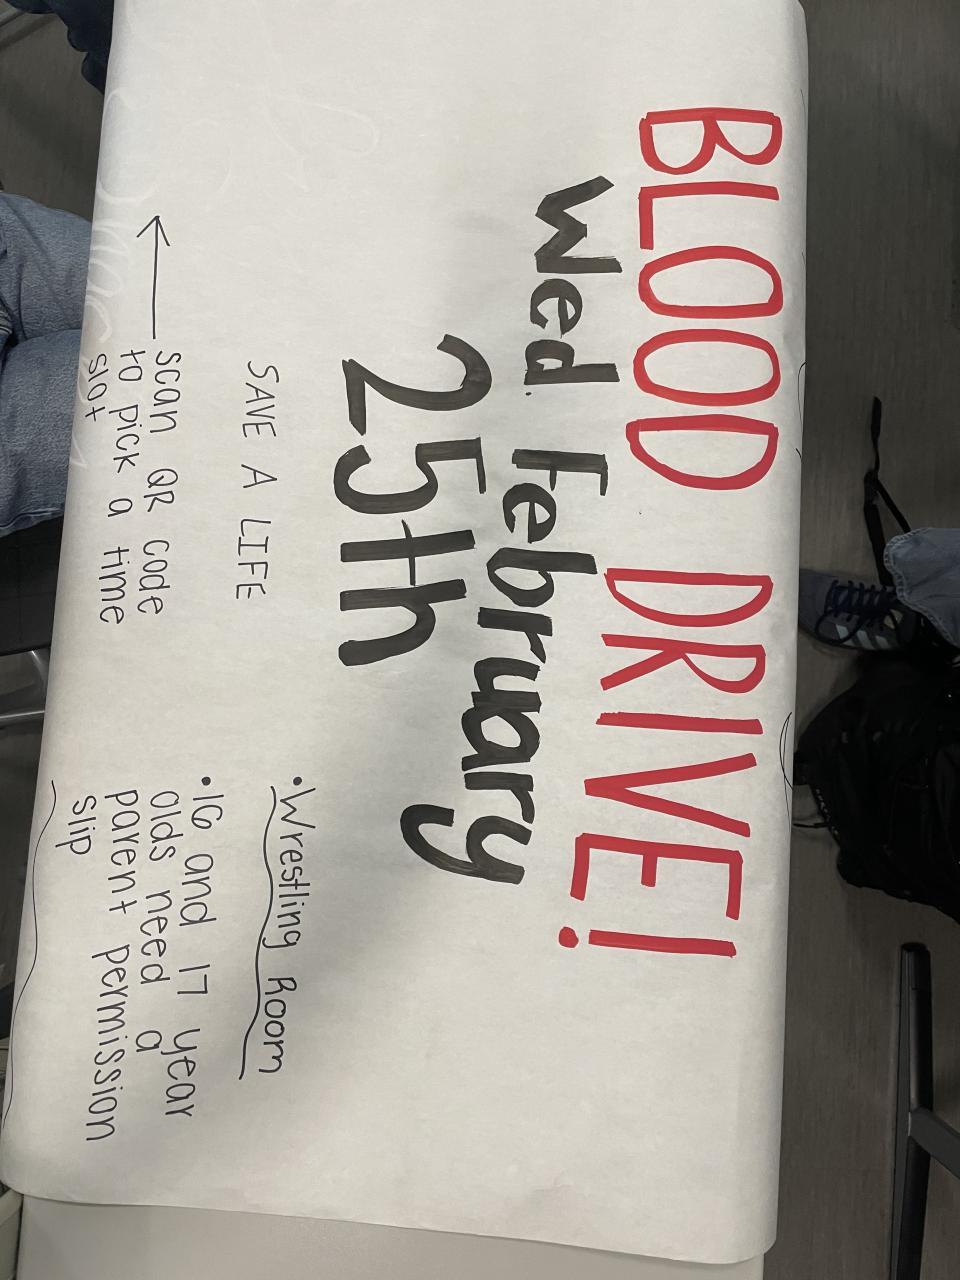 BLOOD DRIVE!
Wed. February
25th
SAVE A LIFE
Scan QR code
to pick a time
slot
• Wrestling Room
• 16 and 17 year
olds need a
parent permission
slip